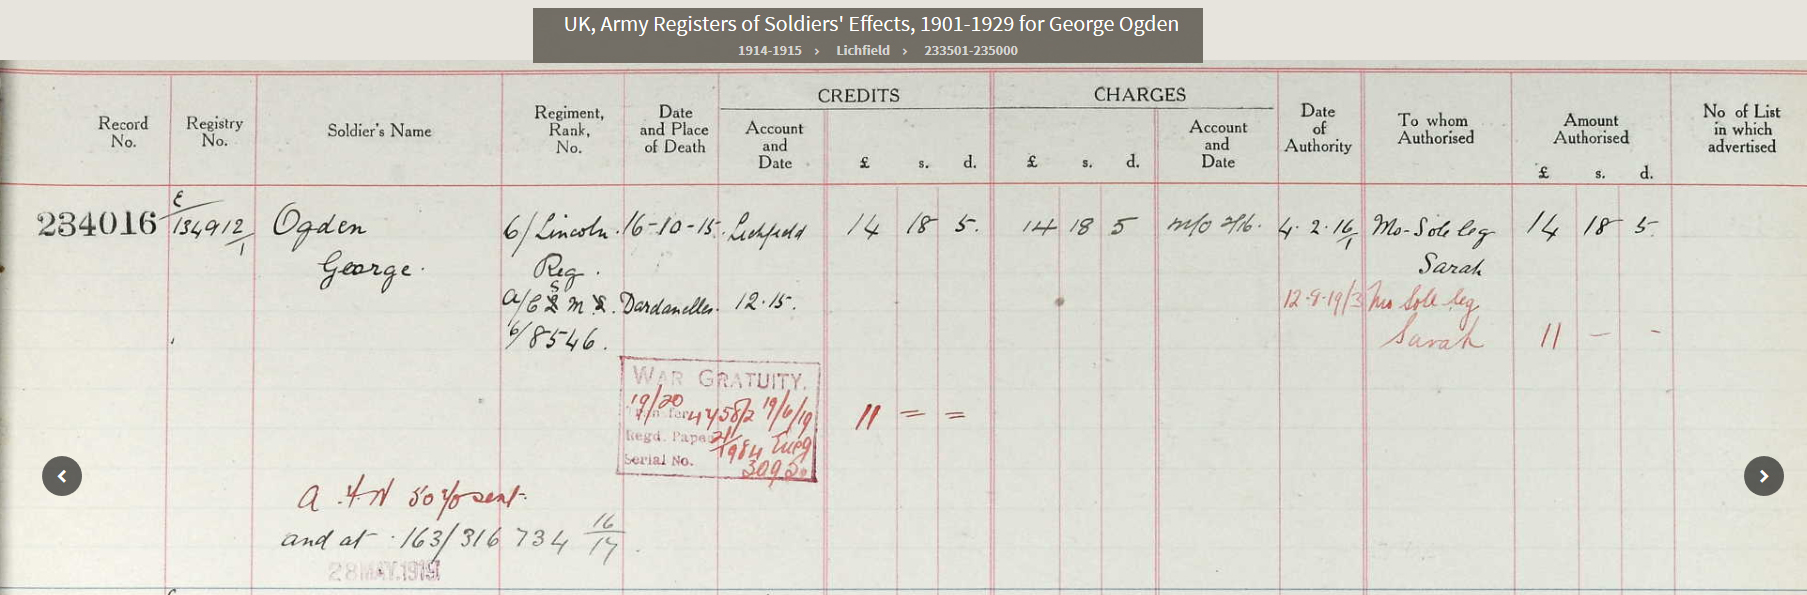 UK, Army Registers of Soldiers' Effects, 1901-1929 for George Ogden
1914-1915 › Lichfield › 233501-235000
Record No.
Registry No.
Soldier's Name
Regiment, Rank, No.
Date and Place of Death
CREDITS
Account and Date
£ s. d.
CHARGES
£ s. d.
Account and Date
Date of Authority
To whom Authorised
Amount Authorised
£ s. d.
No of List in which advertised
234016 E/134912/1 Ogden 6/Lincoln. 16-10-15. Lichfield 14 18 5. 14 18 5 4.2.16/1 Mo-Sole leg 14 18 5.
George. Reg. Sarah
Dardanelles. 12.15. 12.9.19/3 Mo Sole leg
6/8546. Sarah 11 - -
WAR GRATUITY.
19/20 19/6/19 11 = =
Regd. Paper
Serial No.
and at 163/316 734 16/17
28 MAY 1919